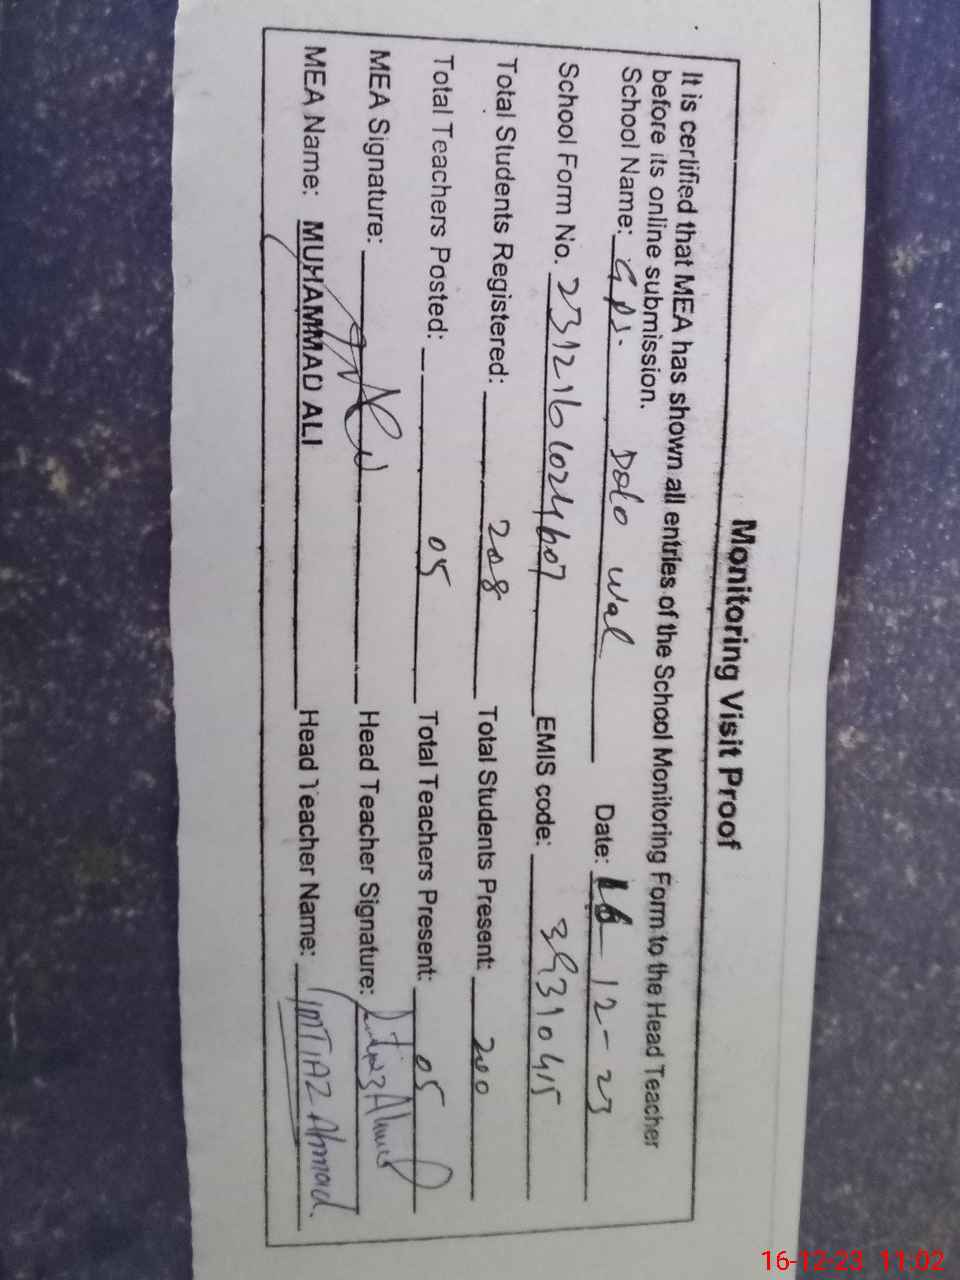 Monitoring Visit Proof
It is certified that MEA has shown all entries of the School Monitoring Form to the Head Teacher
before its online submission.
School Name: GPS. Dolo wal Date: 16-12-23
School Form No. 2312161024607 EMIS code:
Total Students Registered: 208 Total Students Present: 200
Total Teachers Posted: 05 Total Teachers Present: 05
MEA Signature: Head Teacher Signature:
MEA Name: MUHAMMAD ALI Head Teacher Name: IMTIAZ Ahmad.
16-12-23 11:02